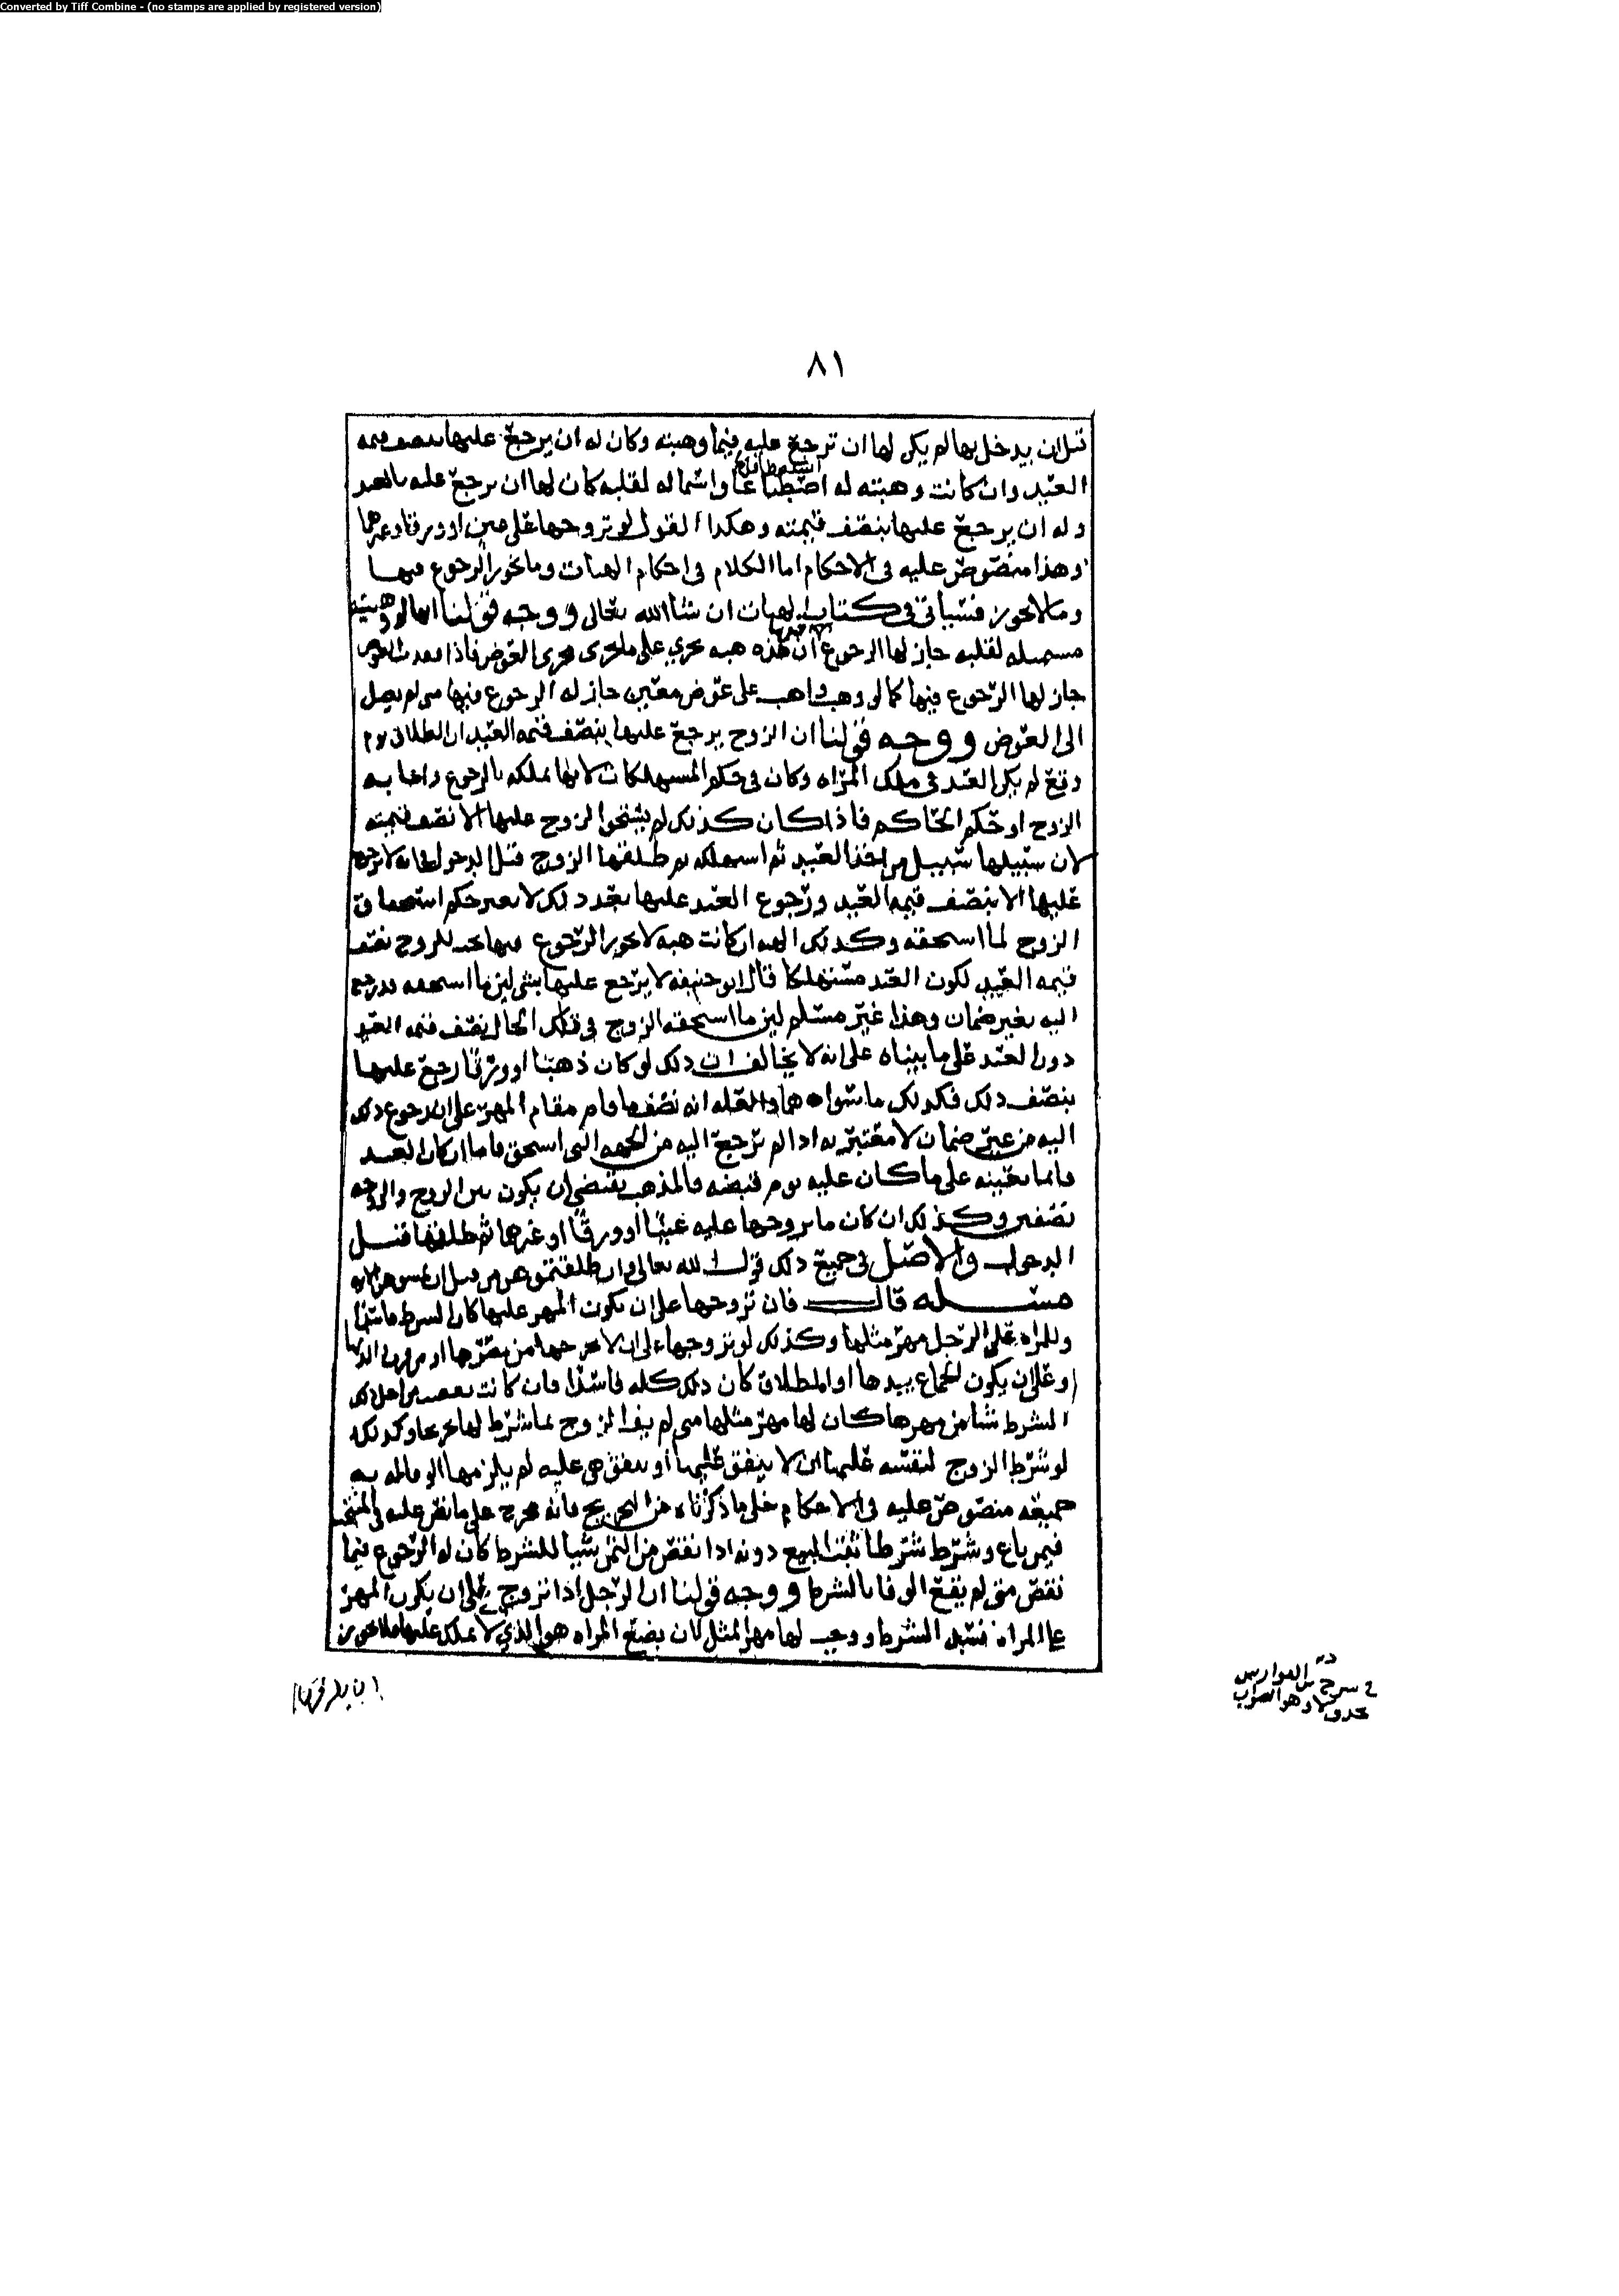 Converted by Tiff Combine - (no stamps are applied by registered version)
٨١
قبل ان يدخل بها لم يكن لها ان ترجع عليه فيما وهبته وكان له ان يرجع عليها بنصف قيمه
العبد وان كانت وهبته له اصطناعا واستماله لقلبه كان لها ان ترجع عليه بالعبد
وله ان يرجع عليها بنصف قيمته وهكذا القول لو تزوجها على عين او ورق او غيرهما
وهذا منصوص عليه في الاحكام اما الكلام في احكام الهبات وما يجوز الرجوع فيها
وما لا يجوز فسياتي في كتاب الهبات ان شا الله تعالى ووجه قولنا انها لو وهبته
مستميله لقلبه جاز لها الرجوع ان هذه هبه تجري على ما يجري مجرى العوض فاذا
جاز لها الرجوع فيها كما لو وهب واهب على عوض معين جاز له الرجوع فيها متى لم يصل
الى العوض ووجه قولنا ان الزوج يرجع عليها بنصف قيمه العبد ان الطلاق لما
وقع لم يكن العبد في ملك المراه وكان في حكم المستهلكات لانها تملكه بالرجوع
الزوج او حكم الحاكم فاذا كان كذلك لم يستحق الزوج عليها الا نصف قيمته
لان سبيلها سبيل من اخذ العبد ثم استهلكه ثم طلقها الزوج قبل الدخول فانه لا يرجع
عليها الا بنصف قيمه العبد ورجوع العبد عليها بعد ذلك لا يغير حكم استحقاق
الزوج لما استحقه وكذلك الهبه ان كانت هبه لا يجوز الرجوع فيها للزوج نصف
قيمه العبد لكون العبد مستهلكا قال ابو حنيفه لا يرجع عليها بشي لان ما استحقه قد رجع
اليه بغير ضمان وهذا غير مسلم لان ما استحقه الزوج في تلك الحال نصف قيمه العبد
دون العبد على ما بيناه على انه لا يخالف ان ذلك لو كان ذهبا او ورقا رجع عليها
بنصف ذلك فكذلك ما سواهما والعله انه نصف ما قام مقام المهر على ان رجوع ذلك
اليه من غير ضمان لا معتبر به اذا لم يرجع اليه من الجهه التي استحق فاما ان كان العبد
قائما بعينه على ما كان عليه يوم قبضه فالمذهب يقتضي ان يكون بين الزوج والزوجه
نصفين وكذلك ان كان ما تزوجها عليه عينا او ورقا او غيرها ثم طلقها قبل
الدخول والاصل في جميع ذلك قول الله تعالى وان طلقتموهن من قبل ان تمسوهن
مسئله قال فان تزوجها على ان يكون المهر عليها كان الشرط فاسدا
وللمراه على الرجل مهر مثلها وكذلك لو تزوجها على ان لا يخرجها من مصرها او
وعلى ان يكون الجماع بيدها او الطلاق كان ذلك كله فاسدا فان كانت نقصت من اجل ذلك
الشرط شيا من مهرها كان لها مهر مثلها متى لم يف الزوج بما شرط لها وكذلك
لو شرط الزوج لنفسه عليها ان لا ينفق عليها او تنفق هي عليه لم يلزمها الوفا له به
جميعه منصوص عليه في الاحكام خلى ما ذكرناه من التخريج فانه مخرج على ما نص عليه في المنتخب
فيمن باع وشرط شرطا ثبت البيع دونه اذا نقص من الثمن شيا للشرط كان له الرجوع فيما
نقص متى لم يقع الوفا بالشرط ووجه قولنا ان الرجل اذا تزوج على ان يكون المهر
على المراه فسد الشرط ووجب لها مهر المثل لان بضع المراه هو الذي لا يملك عليها
في شرح
حذف لا وهو الصواب